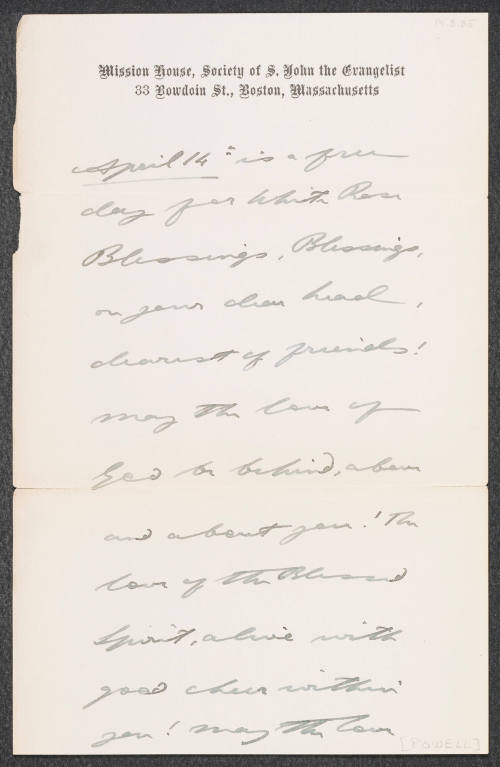 14.3.35
Mission House, Society of S. John the Evangelist
33 Bowdoin St., Boston, Massachusetts
April 14th is a free
day for White Rose
Blessings, Blessings,
on your dear head,
dearest of friends!
may the love of
God be behind, above
and about you! The
love of the Blessed
Spirit, alive with
good cheer within
you! may the love
[POWELL]